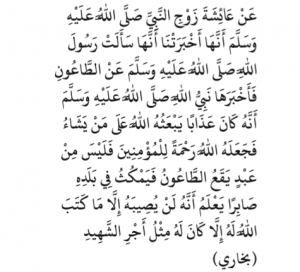 عَنْ عَائِشَةَ زَوْجِ النَّبِيِّ صَلَّى اللهُ عَلَيْهِ
وَسَلَّمَ أَنَّهَا أَخْبَرَتْنَا أَنَّهَا سَأَلَتْ رَسُولَ
اللهِ صَلَّى اللهُ عَلَيْهِ وَسَلَّمَ عَنْ الطَّاعُونِ
فَأَخْبَرَهَا نَبِيُّ اللهِ صَلَّى اللهُ عَلَيْهِ وَسَلَّمَ
أَنَّهُ كَانَ عَذَابًا يَبْعَثُهُ اللهُ عَلَى مَنْ يَشَاءُ
فَجَعَلَهُ اللهُ رَحْمَةً لِلْمُؤْمِنِينَ فَلَيْسَ مِنْ
عَبْدٍ يَقَعُ الطَّاعُونُ فَيَمْكُثُ فِي بَلَدِهِ
صَابِرًا يَعْلَمُ أَنَّهُ لَنْ يُصِيبَهُ إِلَّا مَا كَتَبَ
اللهُ لَهُ إِلَّا كَانَ لَهُ مِثْلُ أَجْرِ الشَّهِيدِ
(بخاري)